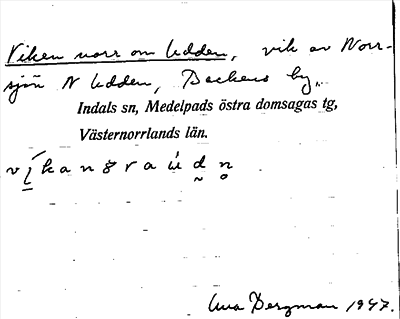 Viken norr om Udden, vik av Norr-
sjön N Udden, Backens by,
Indals sn, Medelpads östra domsagas tg,
Västernorrlands län.
Bergman 1947.